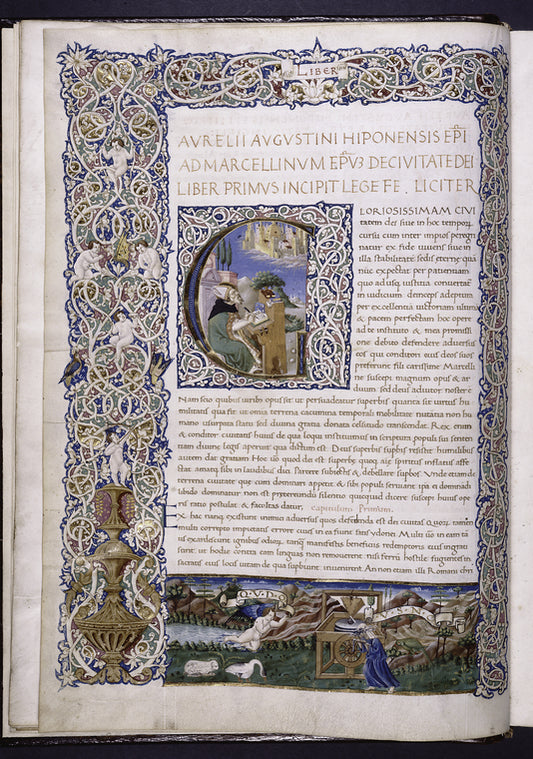 LIBER
AVRELII AVGVSTINI HIPONENSIS EP̄I
AD MARCELLINVM EP̄VȜ DECIVITATEDEI
LIBER PRIMVS INCIPIT LEGE FE . LICITER
LORIOSISSIMAM CIVI
tatem dei siue in hoc temporū
cursu cum inter impios peregri
natur ex fide uiuens siue in
illa stabilitate sedis eterne quā
nūc expectat per patientiam
quo adusq iustitia conuertat̄
in iudicium deinceps adeptura
per excellentiā uictoriam ultimā
& pacem perfectam hoc opere
ad te instituto & mea promissi
one debito defendere aduersus
eos qui conditori eius deos suos
preferunt fili carissime Marcelli
ne suscepi magnum opus & ar
duum sed deus adiutor noster ē
Nam scio quibus uirib opus sit ut persuadeatur superbis quanta sit uirtus hu
militatis qua fit ut omnia terrena cacumina temporali mobilitate nutātia non hu
mano usurpata fastu sed diuina gratia donata celsitudo transcendat. Rex enim
& conditor ciuitatis huius de qua loqui instituimus in scriptura populi sui senten
tiam diuine legis aperuit qua dictum est. Deus superbis resistit humilibus
autem dat gratiam Hoc uō quod dei est superbe quoq aīe spiritus inflatus affe
ctat amatq sibi in laudibus dici. Parcere subiectis & debellare supbos Vnde etiam de
terrena ciuitate que cum dominari appetit & si populi seruiant ipa ei dominadi
libido dominatur non est pretereundū silentio quicquid dicere suscepti huius ope
ris ratio postulat & facultas datur, capitulum Primum.
X hac nanq existunt inimici aduersus quos defendenda est dei ciuitas Quoȝ tamen
multi correpto impietatis errore ciues in ea fiunt satis ydonei Multi uō in eam tā
is exardescunt ignibus odioȝ. tanq manifestis beneficiis redemptoris eius ingrati
sunt: ut hodie contra eam linguas non mouerent nisi ferrū hostile fugientes in
sacratis eius locis uitam de qua supbiunt inuenirent. An non etiam illi Romani chri
Q · V · D · Q
V · S · N · T